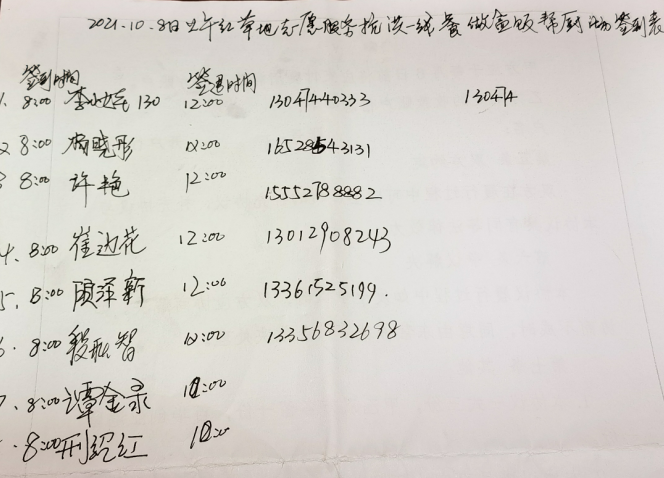 2021.10.8日上午红草地志愿服务抗洪一线餐做盒饭帮厨活动签到表
签到时间 签退时间
1. 8:00 李 130 12:00 13047440333 130474
2 8:00 杨晓彤 12:00 16528543131
3 8:00 许艳 12:00 15552788882
4. 8:00 崔边花 12:00 13012908243
5. 8:00 顾泽新 12:00 13361525199.
6. 8:00 智 12:00 13356832698
7. 8:00 谭金录 12:00
8:00 刑绍红 12:00